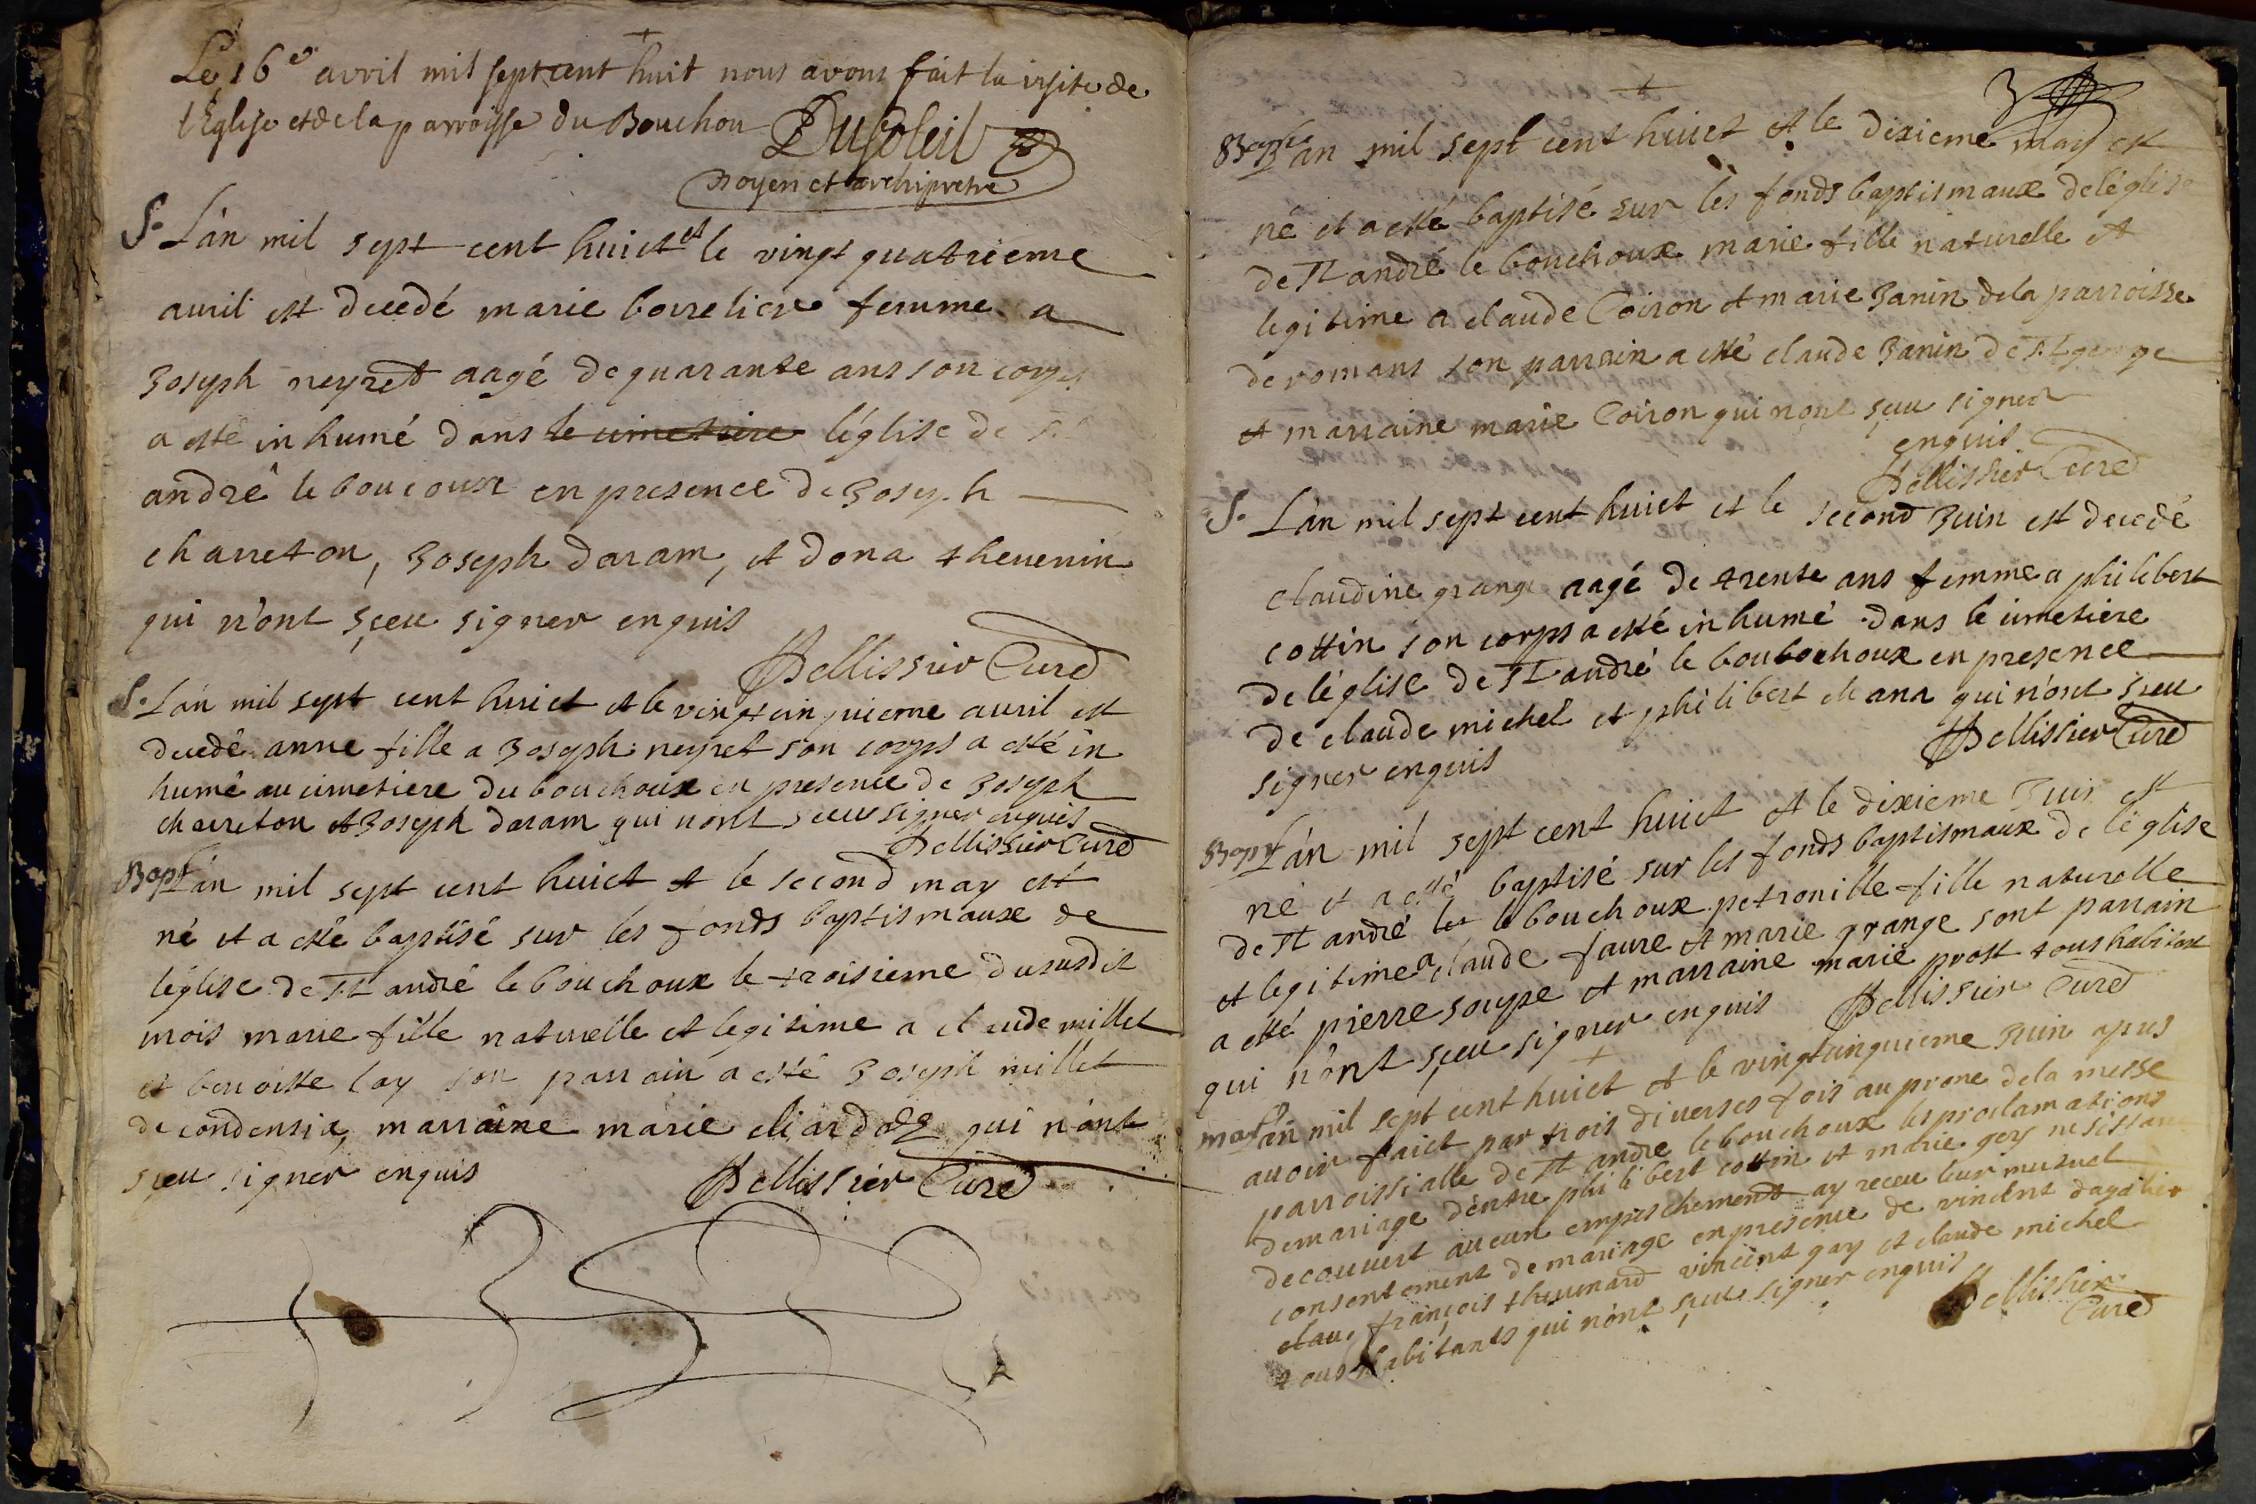 Le 16e avril mil sept cent huit nous avons fait la visite de
l'Eglise et de la parroisse du Bouchou
DuSoleil
Doyen et archipretre
S. L'an mil sept cent huict et le vingt quatrieme
avril est decedé marie borrelier femme a
Joseph neyret aagé de quarante ans son corps
a esté inhumé dans le cimetiere l'église de St
andré le boucoux en presence de Joseph
charreton, Joseph daram, et dona thevenin
qui n'ont sçeu signer enquis
Pellissier Curé
S. L'an mil sept cent huict et le vingt cinquieme avril est
decedé anne fille a Joseph neyret son corps a esté in
humé au cimetiere du bouchoux en presence de Joseph
charreton et Joseph daram qui nont sceu signer enquis
Pellissier Curé
Bapt L'an mil sept cent huict et le second may est
né et a esté baptisé sur les fonds baptismaux de
léglise de St andré le bouchoux le troisieme du susdit
mois marie fille naturelle et legitime a claude millet
et benoiste lay son parrain a esté Joseph millet
de condensia, marraine marie qui n'ont
sçeu signer enquis Pellissier Curé
3
Bapt L'an mil sept cent huict et le dixieme may est
né et a esté baptisé sur les fonds baptismaux de léglise
de St andré le bouchoux marie fille naturelle et
legitime a claude Coiron et marie Janin de la parroisse
de romans son parrain a esté claude Janin de St george
et marraine marie Coiron qui nont sçeu signer
enquis
Pellissier Curé
S. L'an mil sept cent huict et le second Juin est decedé
claudine grange aagé de trente ans femme a philibert
cottin son corps a esté inhumé dans le cimetiere
de léglise de St andré le boubochoux en presence
de claude michel et philibert chana qui n'ont sceu
signer enquis Pellissier Curé
Bapt L'an mil sept cent huict et le dixieme Juin est
né et a esté baptisé sur les fonds baptismaux de léglise
de St andré le bouchoux petronille fille naturelle
et legitime a claude faure et marie grange sont parrain
a esté pierre soupe et marraine marie prost tous habitans
qui n'ont sçeu signer enquis Pellissier Curé
mar L'an mil sept cent huict et le vingt cinquieme Juin apres
avoir faict par trois diverses fois au prone de la messe
parroissialle de St andré le bouchoux les proclamations
de mariage d'entre philibert cottin et marie gay nesistant
decouvert aucun empeschement ay receu leur mutuel
consentement de mariage en presence de vincent
françois thevenard vincent gay et claude michel
tous habitants qui n'ont sçeu signer enquis Pellissier
Curé